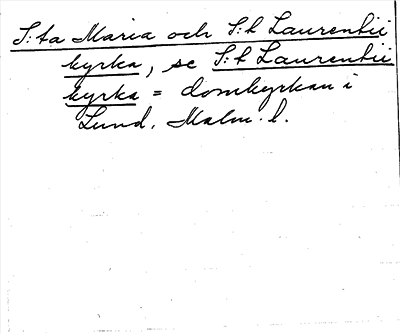 S:ta Maria och S:t Laurentii
kyrka, se S:t Laurentii
kyrka = domkyrkan i
Lund, Malm. l.